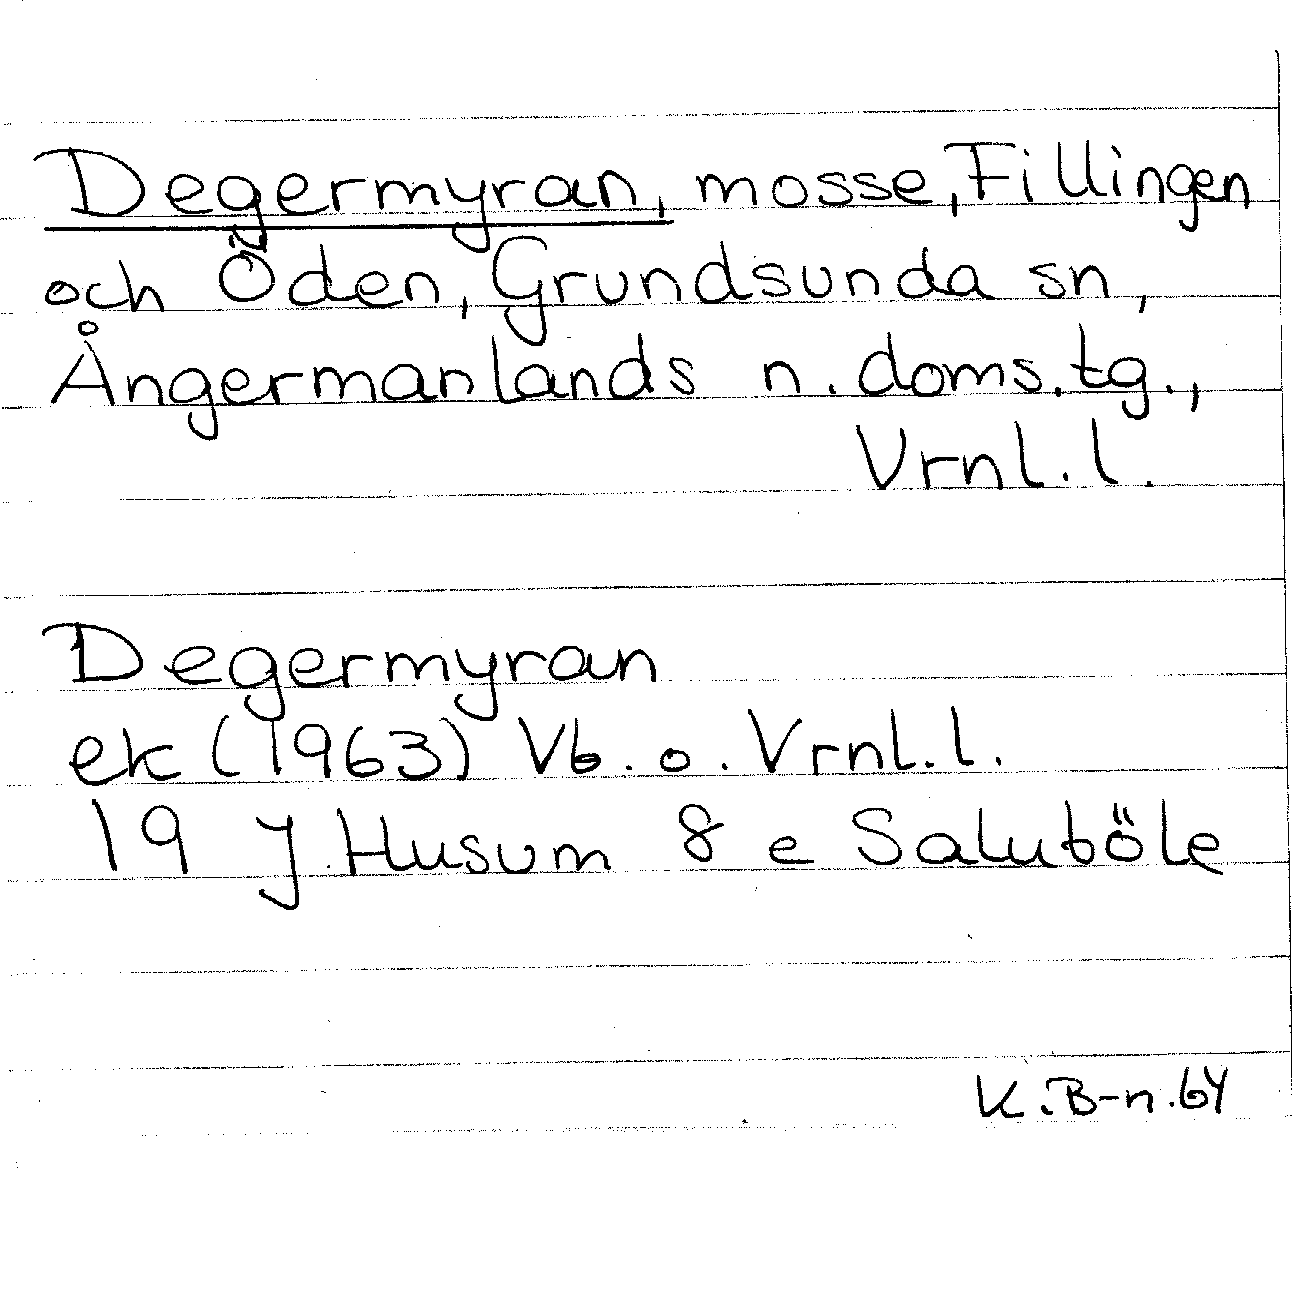 Degermyran, mosse, Fillingen
och Öden, Grundsunda sn,
Ångermanlands n. doms.tg.,
Vrnl.l.
Degermyran
ek (1963) Vb. o. Vrnl.l.
19 J Husum 8 e Saluböle
K.B-n.64